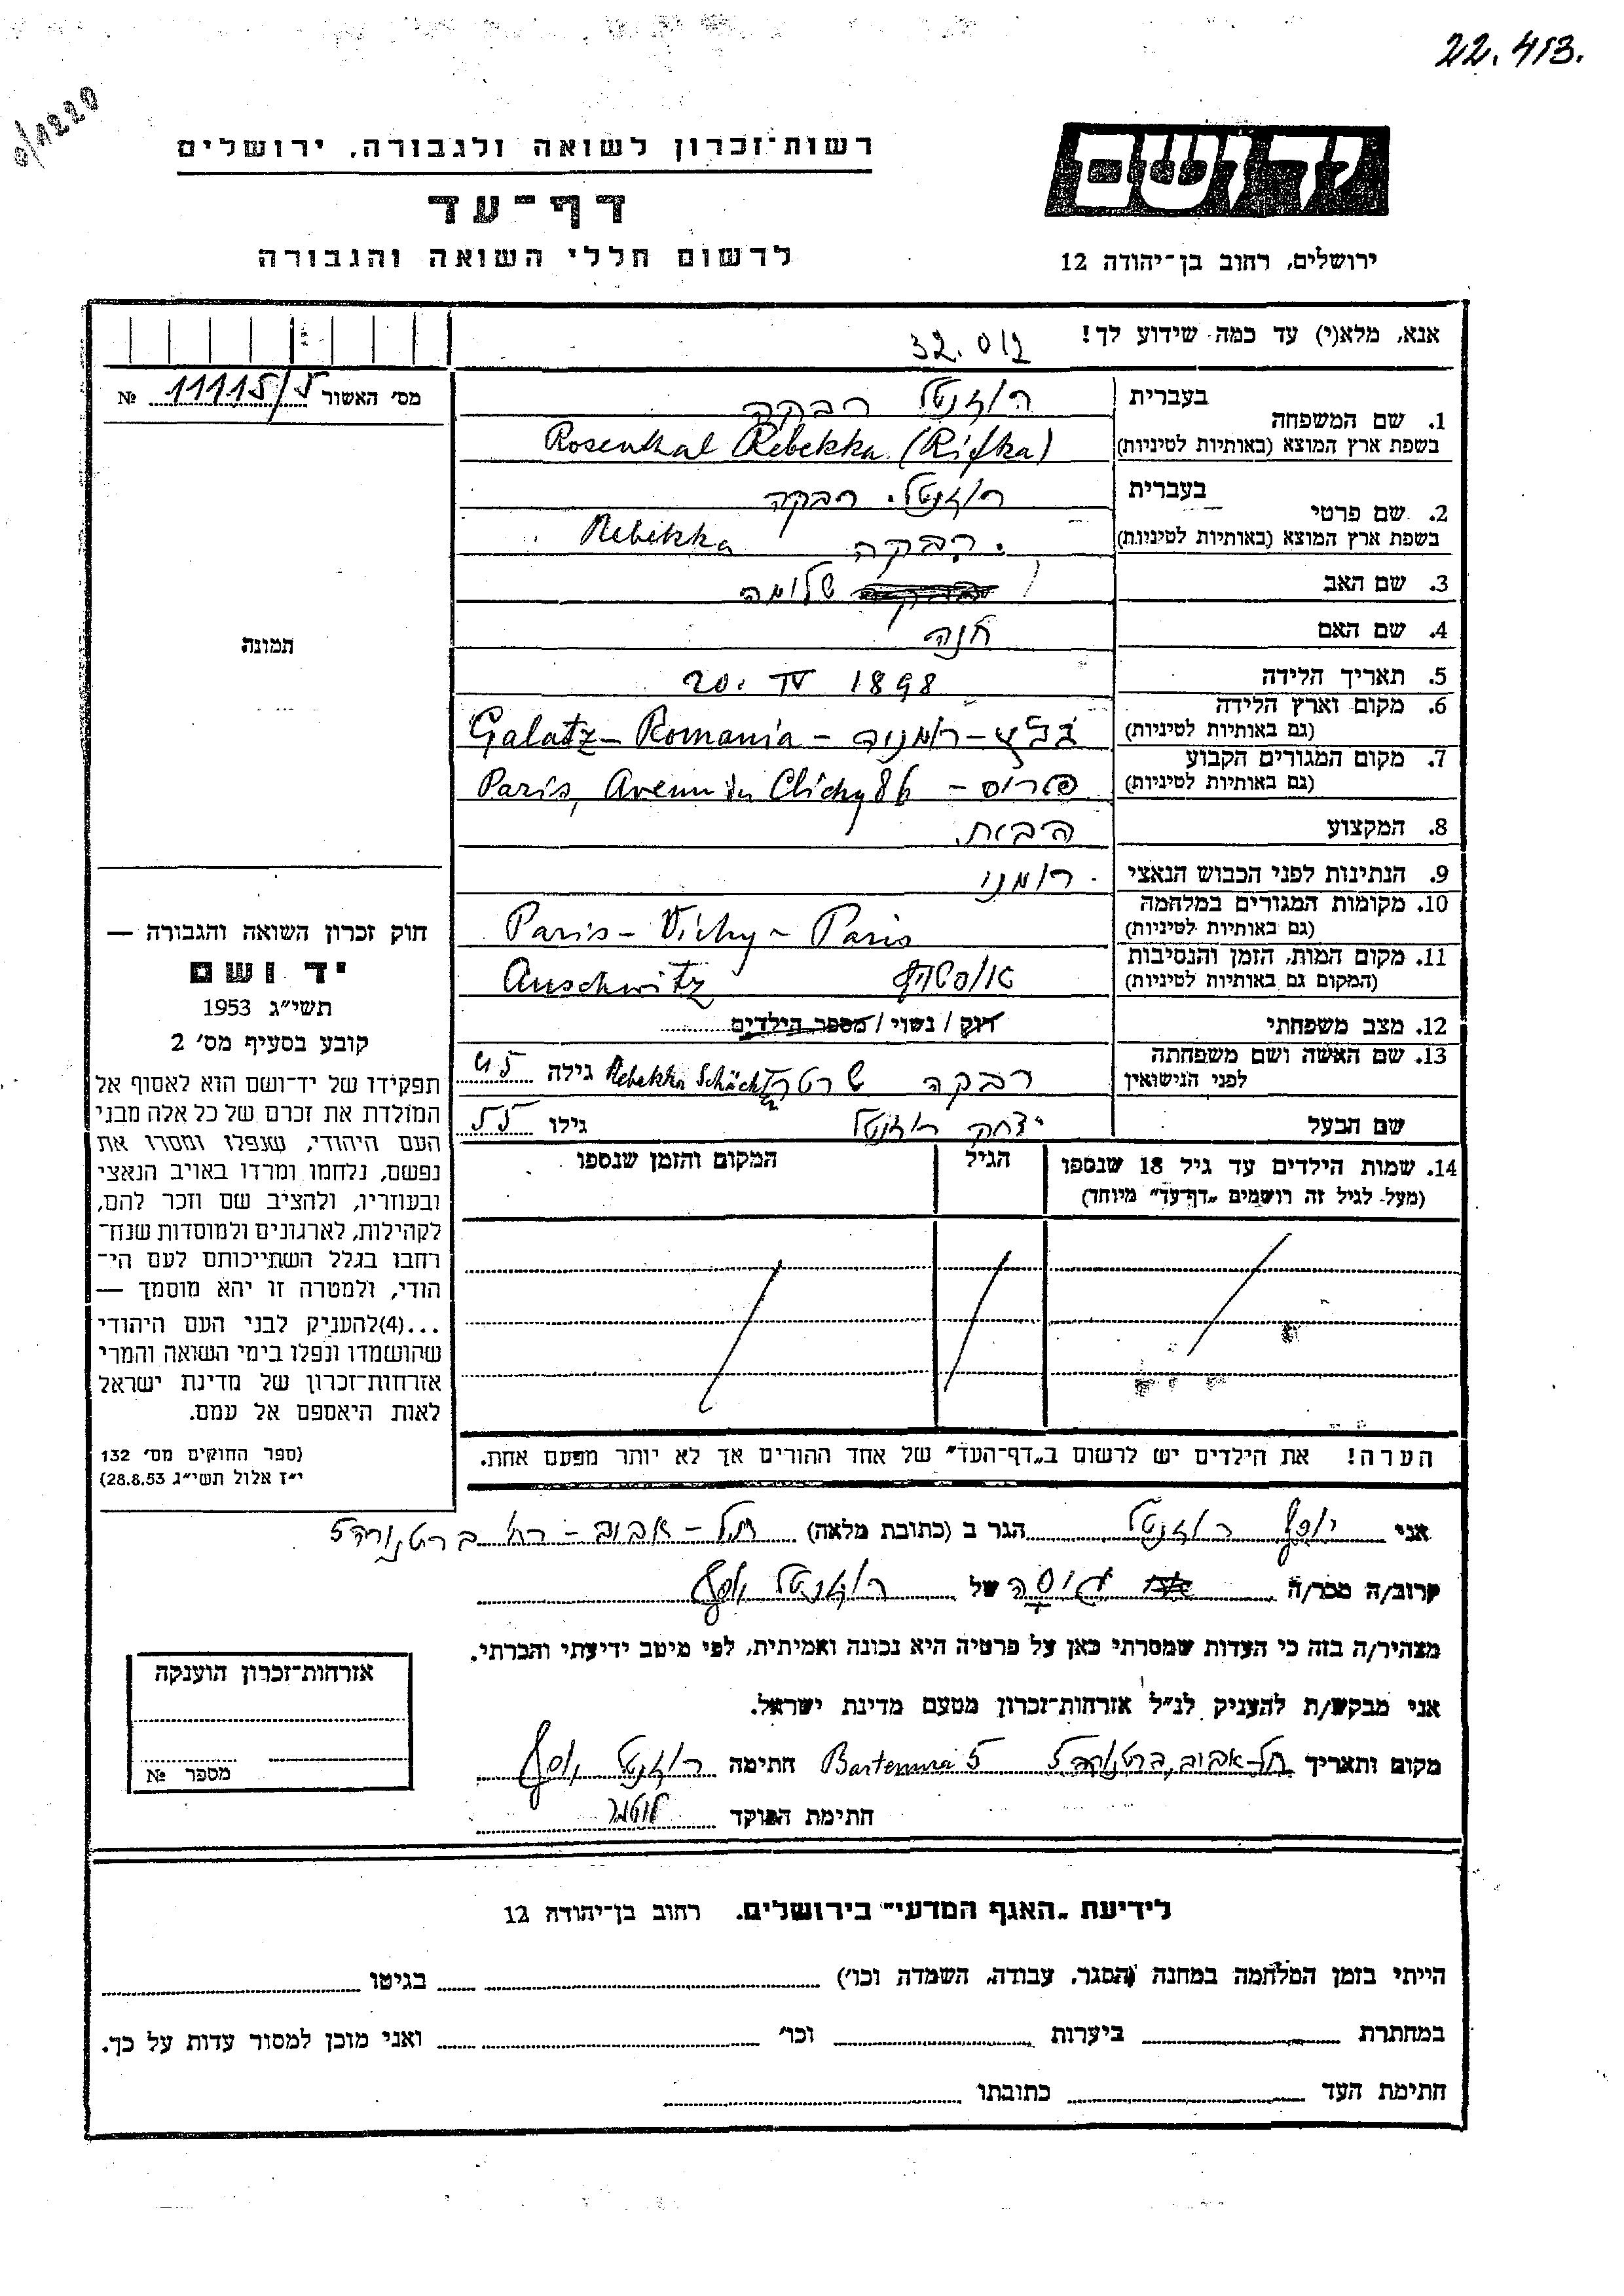 22.413.
רשות־זכרון לשואה ולגבורה, ירושלים
דף־עד
לרשום חללי השואה והגבורה
יד ושם
ירושלים, רחוב בן־יהודה 12
אנא, מלא(י) עד כמה שידוע לך!
32.012
מס׳ האשור 11115/5 №
1. שם המשפחה
בעברית רוזנטל רבקה
בשפת ארץ המוצא (באותיות לטיניות) Rosenthal Rebekka (Rifka)
2. שם פרטי
בעברית רוזנטל. רבקה
בשפת ארץ המוצא (באותיות לטיניות) רבקה Rebekka
3. שם האב שלומה
4. שם האם חנה
5. תאריך הלידה 20. IV 1898
6. מקום וארץ הלידה
(גם באותיות לטיניות) גלץ – רומניה – Galatz – Romania
7. מקום המגורים הקבוע
(גם באותיות לטיניות) פריס – Paris, Avenu du Clichy 86
8. המקצוע הבית.
9. הנתינות לפני הכבוש הנאצי רומני
10. מקומות המגורים במלחמה
(גם באותיות לטיניות) Paris – Vichy – Paris
11. מקום המות, הזמן והנסיבות
(המקום גם באותיות לטיניות) Auschwitz
12. מצב משפחתי רוק / נשוי / מספר הילדים
13. שם האשה ושם משפחתה
לפני הנישואין רבקה Rebekka גילה 45
שם הבעל יצחק רוזנטל גילו 55
14. שמות הילדים עד גיל 18 שנספו
(מעל לגיל זה רושמים „דף־עד״ מיוחד)
הגיל
המקום והזמן שנספו
הערה! את הילדים יש לרשום ב„דף־העד״ של אחד ההורים אך לא יותר מפעם אחת.
תמונה
חוק זכרון השואה והגבורה —
יד ושם
תשי״ג 1953
קובע בסעיף מס׳ 2
תפקידו של יד־ושם הוא לאסוף אל
המולדת את זכרם של כל אלה מבני
העם היהודי, שנפלו ומסרו את
נפשם, נלחמו ומרדו באויב הנאצי
ובעוזריו, ולהציב שם וזכר להם,
לקהילות, לארגונים ולמוסדות שנח־
רבו בגלל השתייכותם לעם הי־
הודי, ולמטרה זו יהא מוסמך —
...(4)להעניק לבני העם היהודי
שהושמדו ונפלו בימי השואה והמרי
אזרחות־זכרון של מדינת ישראל
לאות היאספם אל עמם.
(ספר החוקים מס׳ 132
י״ז אלול תשי״ג 28.8.53)
אני יוסף רוזנטל הגר ב (כתובת מלאה) תל – אביב – רח׳ ברטנורה 5
קרוב/ה מכר/ה גיסה של רוזנטל יוסף
מצהיר/ה בזה כי העדות שמסרתי כאן על פרטיה היא נכונה ואמיתית, לפי מיטב ידיעתי והכרתי.
אני מבקש/ת להעניק לנ״ל אזרחות־זכרון מטעם מדינת ישראל.
מקום ותאריך תל–אביב, ברטנורה 5 Bartenura 5 חתימה רוזנטל יוסף
חתימת הפוקד
אזרחות־זכרון הוענקה
מספר №
לידיעת „האגף המדעי״ בירושלים, רחוב בן־יהודה 12
הייתי בזמן המלחמה במחנה (הסגר, עבודה, השמדה וכו׳) בגיטו
במחתרת ביערות וכו׳ ואני מוכן למסור עדות על כך.
חתימת העד כתובתו